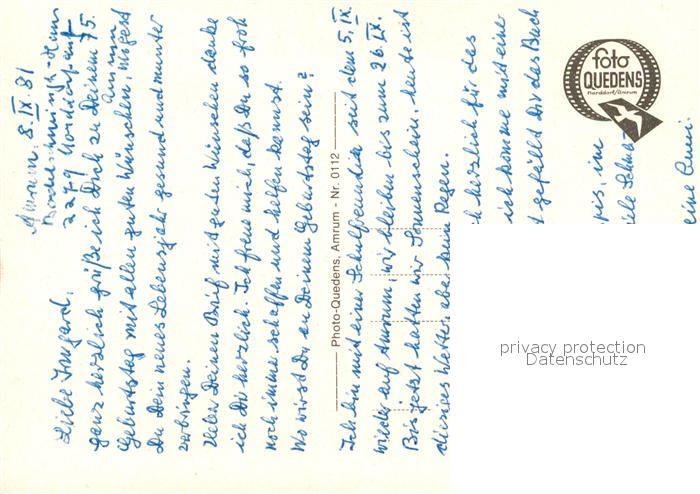 Amrum, 8. IX. 81
2279 Norddorf auf
Amrum
Liebe Irmgard,
ganz herzlich grüße ich Dich zu Deinem 75.
Geburtstag mit allen guten Wünschen, mögest
Du Dein neues Lebensjahr gesund und munter
verbringen.
Deinen Brief mit guten Wünschen danke
ich Dir herzlich. Ich freue mich, daß Du so froh
noch immer schaffen und helfen kannst.
Wo wirst Du an Deinem Geburtstag sein?
Photo-Quedens, Amrum - Nr. 0112
Ich bin mit einer Schulfreundin seit dem 5. IX.
wieder auf Amrum, wir bleiben bis zum 26. IX.
Bis jetzt hatten wir Sonnenschein, heute ist
diesiges Wetter, aber kein Regen.
h herzlich für das
ich komme mit eine
t gefällt Dir das Buch
is, im
le
eine
foto
QUEDENS
Norddorf/Amrum
privacy protection
Datenschutz